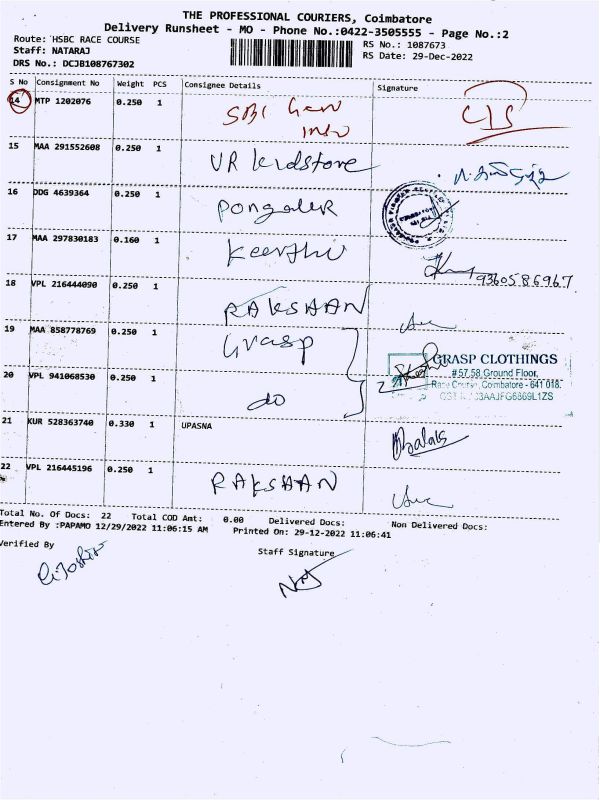 THE PROFESSIONAL COURIERS, Coimbatore
Delivery Runsheet - MO - Phone No.:0422-3505555 - Page No.:2
Route: HSBC RACE COURSE
RS No.: 1087673
Staff: NATARAJ
RS Date: 29-Dec-2022
DRS No.: DCJB108767302
S No Consignment No Weight PCS Consignee Details Signature
14 MTP 1202076 0.250 1 SBI Gen
15 MAA 291552608 0.250 1 UR kidstore
16 DDG 4639364 0.250 1
17 MAA 297830183 0.160 1 Keerthi 9360586967
18 VPL 216444090 0.250 1 RAKSHAN
19 MAA 858778769 0.250 1 Grasp
GRASP CLOTHINGS
#57,58 Ground Floor,
Race Course, Coimbatore - 641 018.
20 VPL 941068530 0.250 1 do
21 KUR 528363740 0.330 1 UPASNA
22 VPL 216445196 0.250 1 RAKSHAN
Total No. Of Docs: 22 Total COD Amt: 0.00 Delivered Docs: Non Delivered Docs:
Entered By :PAPAMO 12/29/2022 11:06:15 AM Printed On: 29-12-2022 11:06:41
Verified By Staff Signature